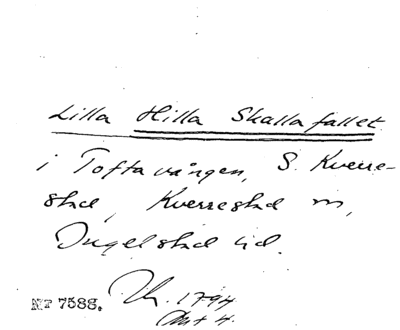 Lilla Hilla Skallafallet
i Toftavången, S. Kverre-
stad, Kverrestad sn,
Ingelstad hd.
Nr 7588. 1794
Akt 4.